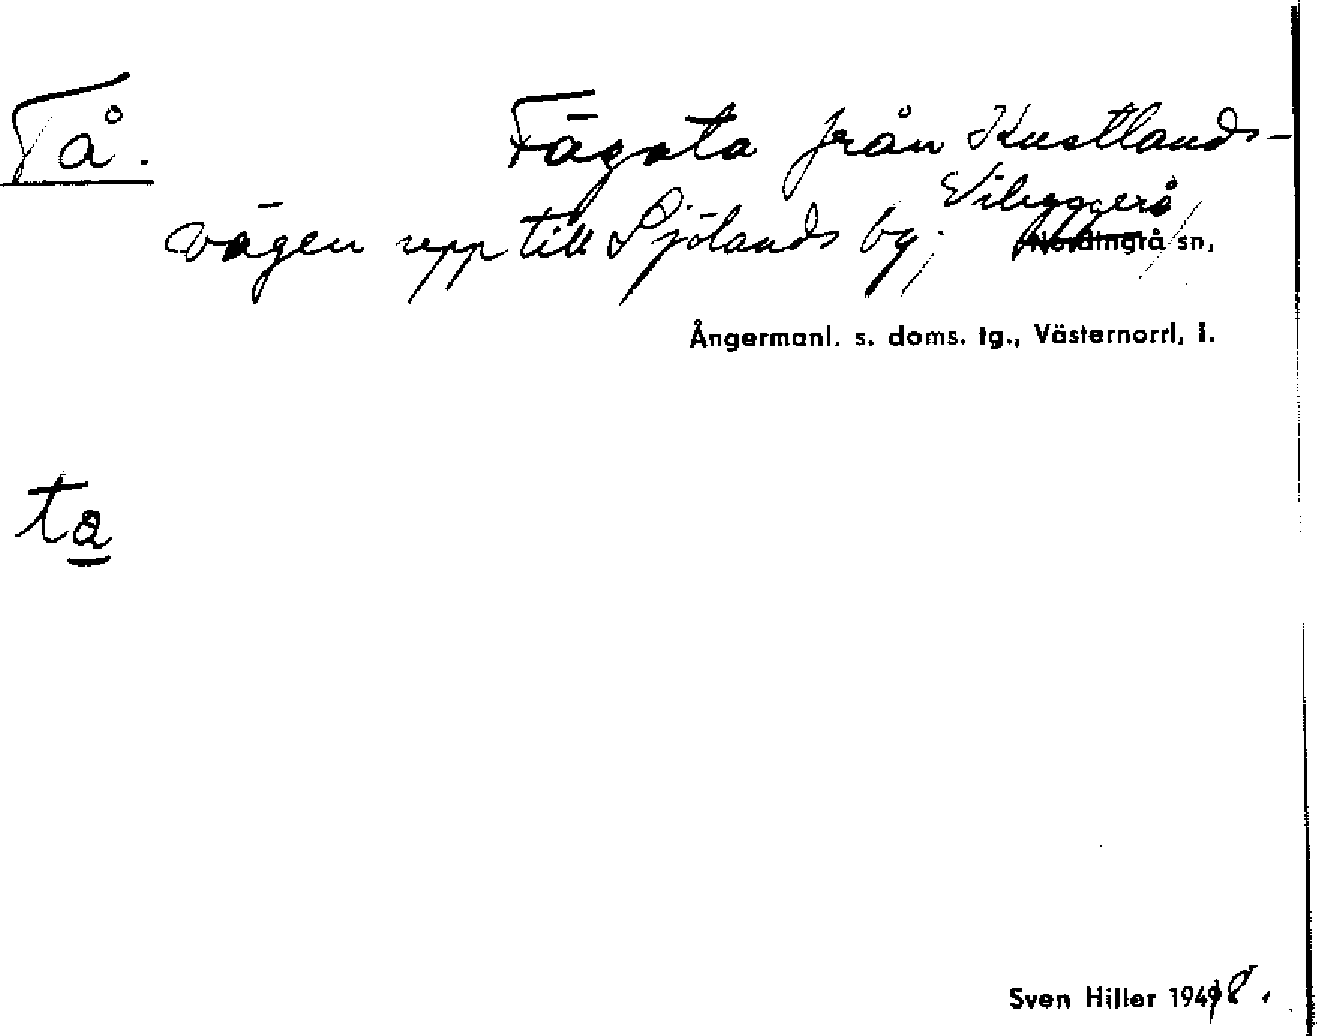 Tå. Fägata från Kustlands-
vägen upp till Sjölands by; Vibyggerå
Nordingrå sn,
Ångermanl. s. doms. tg., Västernorrl, l.
ta
Sven Hiller 1948.